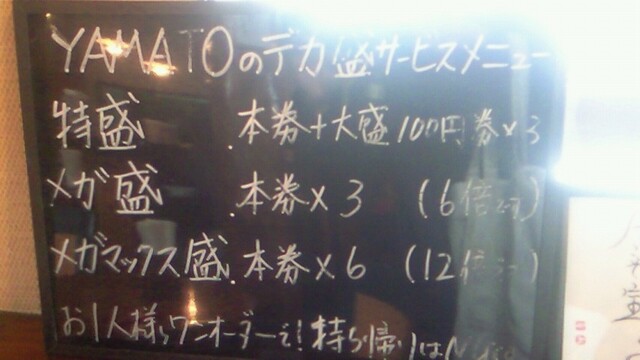 YAMATOのデカ盛サービスメニュー
特盛 .本券+大盛100円券×3
メガ盛 .本券×3 (6倍です)
メガマックス盛.本券×6 (12倍
お1人様ワンオーダーで!持ち帰りは